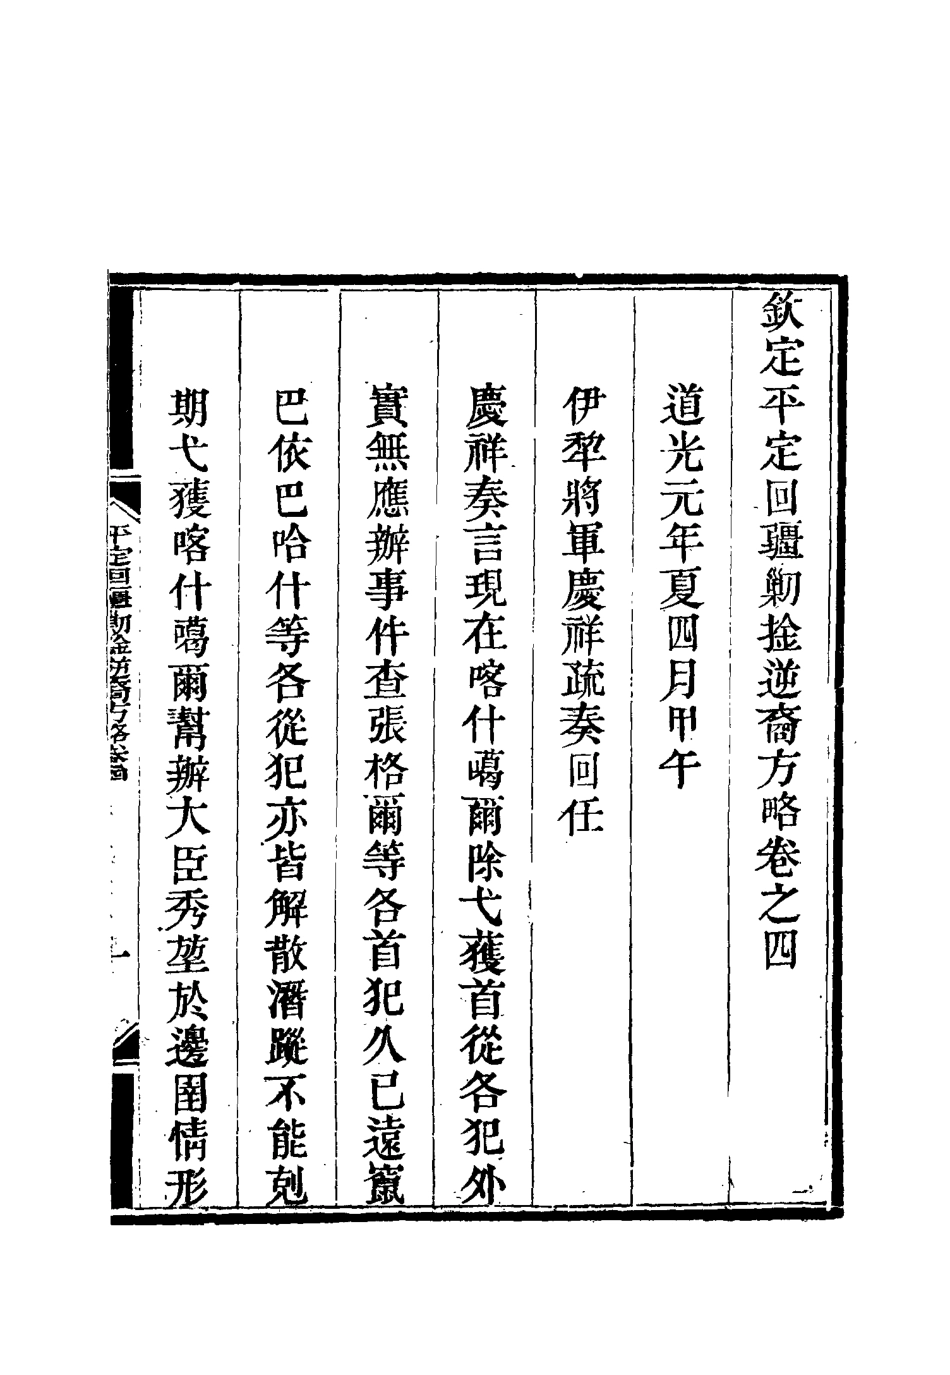 欽定平定回疆勦捦逆裔方略卷之四
道光元年夏四月甲午
伊犂將軍慶祥疏奏回任
慶祥奏言現在喀什噶爾除弋獲首從各犯外
實無應辦事件查張格爾等各首犯久已遠竄
巴依巴哈什等各從犯亦皆解散潛蹤不能剋
期弋獲喀什噶爾幫辦大臣秀堃於邊圉情形
平定回疆勦捦逆裔方略卷四
一